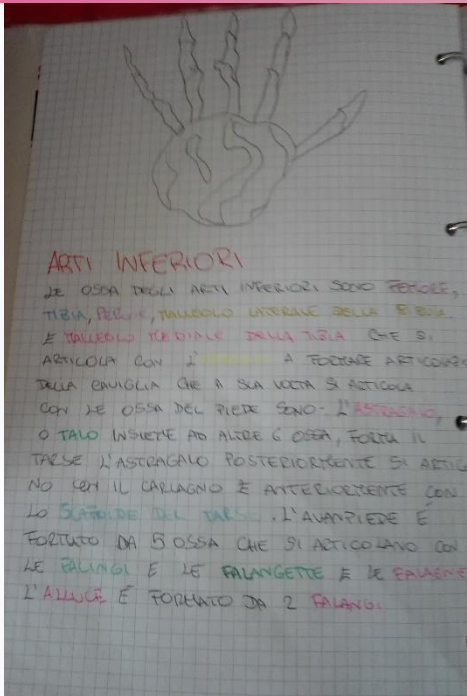 ARTI INFERIORI
LE OSSA DEGLI ARTI INFERIORI SONO FEMORE,
TIBIA, PERONE, MALLEOLO LATERALE DELLA
E MALLEOLO MEDIALE DELLA TIBIA CHE SI
ARTICOLA CON L' A FORMARE
DELLA CAVIGLIA CHE A SUA VOLTA SI ARTICOLA
CON LE OSSA DEL PIEDE SONO: L'ASTRAGALO,
O TALO INSIEME AD ALTRE 6 OSSA, FORMA IL
TARSE L'ASTRAGALO POSTERIORMENTE SI
NO CON IL E ANTERIORMENTE CON
LO DEL TARSE. L'AVANPIEDE È
FORMATO DA 5 OSSA CHE SI ARTICOLANO CON
LE E LE FALANGETTE E LE
L'ALLUCE È FORMATO DA 2 FALANGI